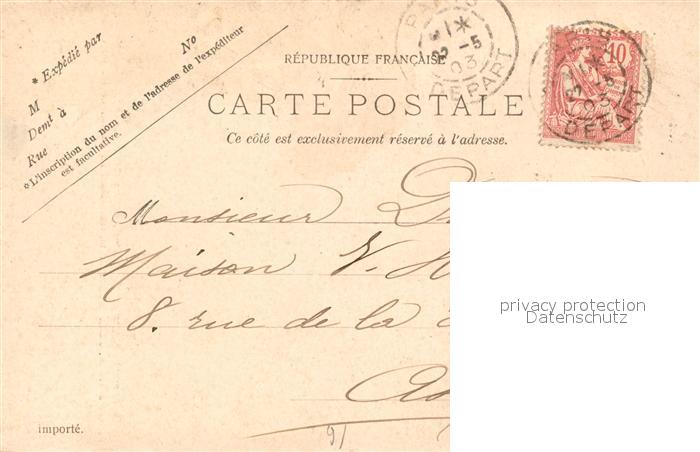 * Expédié par
No
M
Demt à
Rue
* L'inscription du nom et de l'adresse de l'expéditeur
est facultative.
RÉPUBLIQUE FRANÇAISE
CARTE POSTALE
Ce côté est exclusivement réservé à l'adresse.
5
03
DÉPART
10
03
DÉPART
Monsieur
Maison V.
8. rue de la
privacy protection
Datenschutz
importé.
91